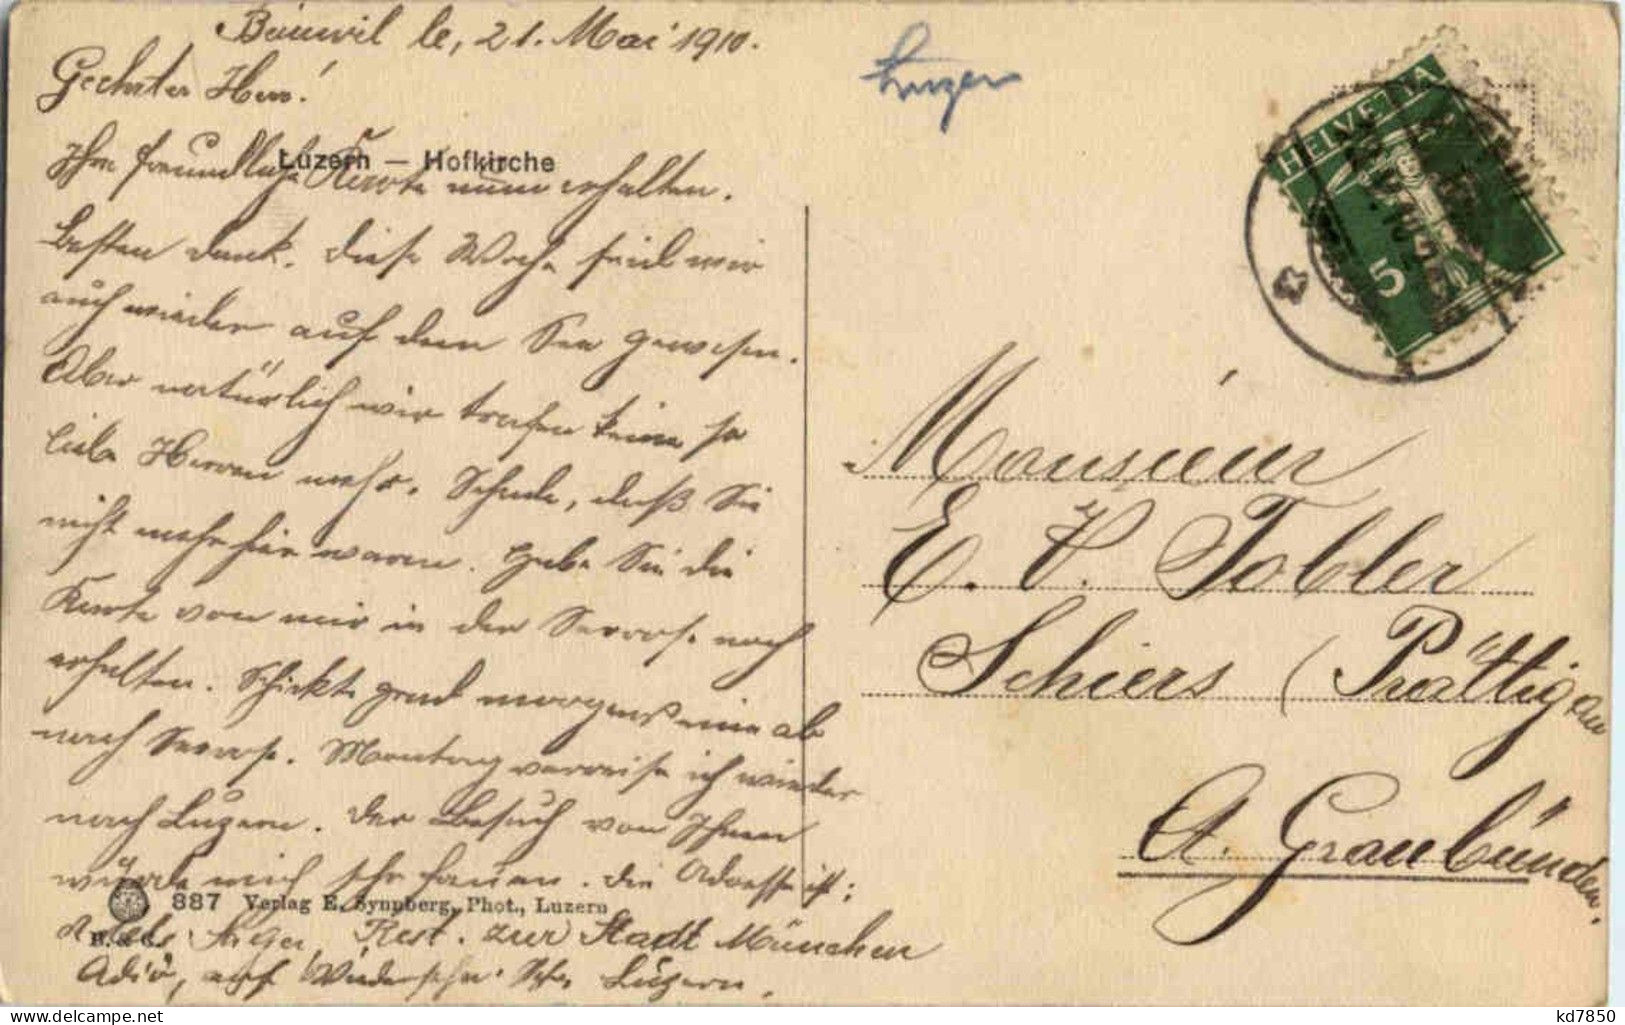 Beinwil le, 21. Mai 1910.
Geehrter Herr!
Luzern — Hofkirche
Ihre freundliche Karte nun erhalten.
Besten Dank. Diese Woche sind wir
auch wieder auf dem See gewesen.
Aber natürlich wir trafen keine so
liebe Herren mehr. Schade, daß Sie
nicht mehr hier waren. Habe Sie die
Karte von mir in der noch
erhalten. Schickte grad morgens ab
nach Montag verreise ich wieder
nach Luzern. Der Besuch von Ihnen
würde mich sehr freuen. Die Adresse ist:
887 Verlag E. Synnberg, Phot., Luzern
Rest. zur Stadt München
Adiö, auf Wiedersehn Luzern.
Luzern
HELVETIA
5
Monsieur
E. V. Tobler
Schiers (Prättigau
Ct. Graubünden.
kd7850